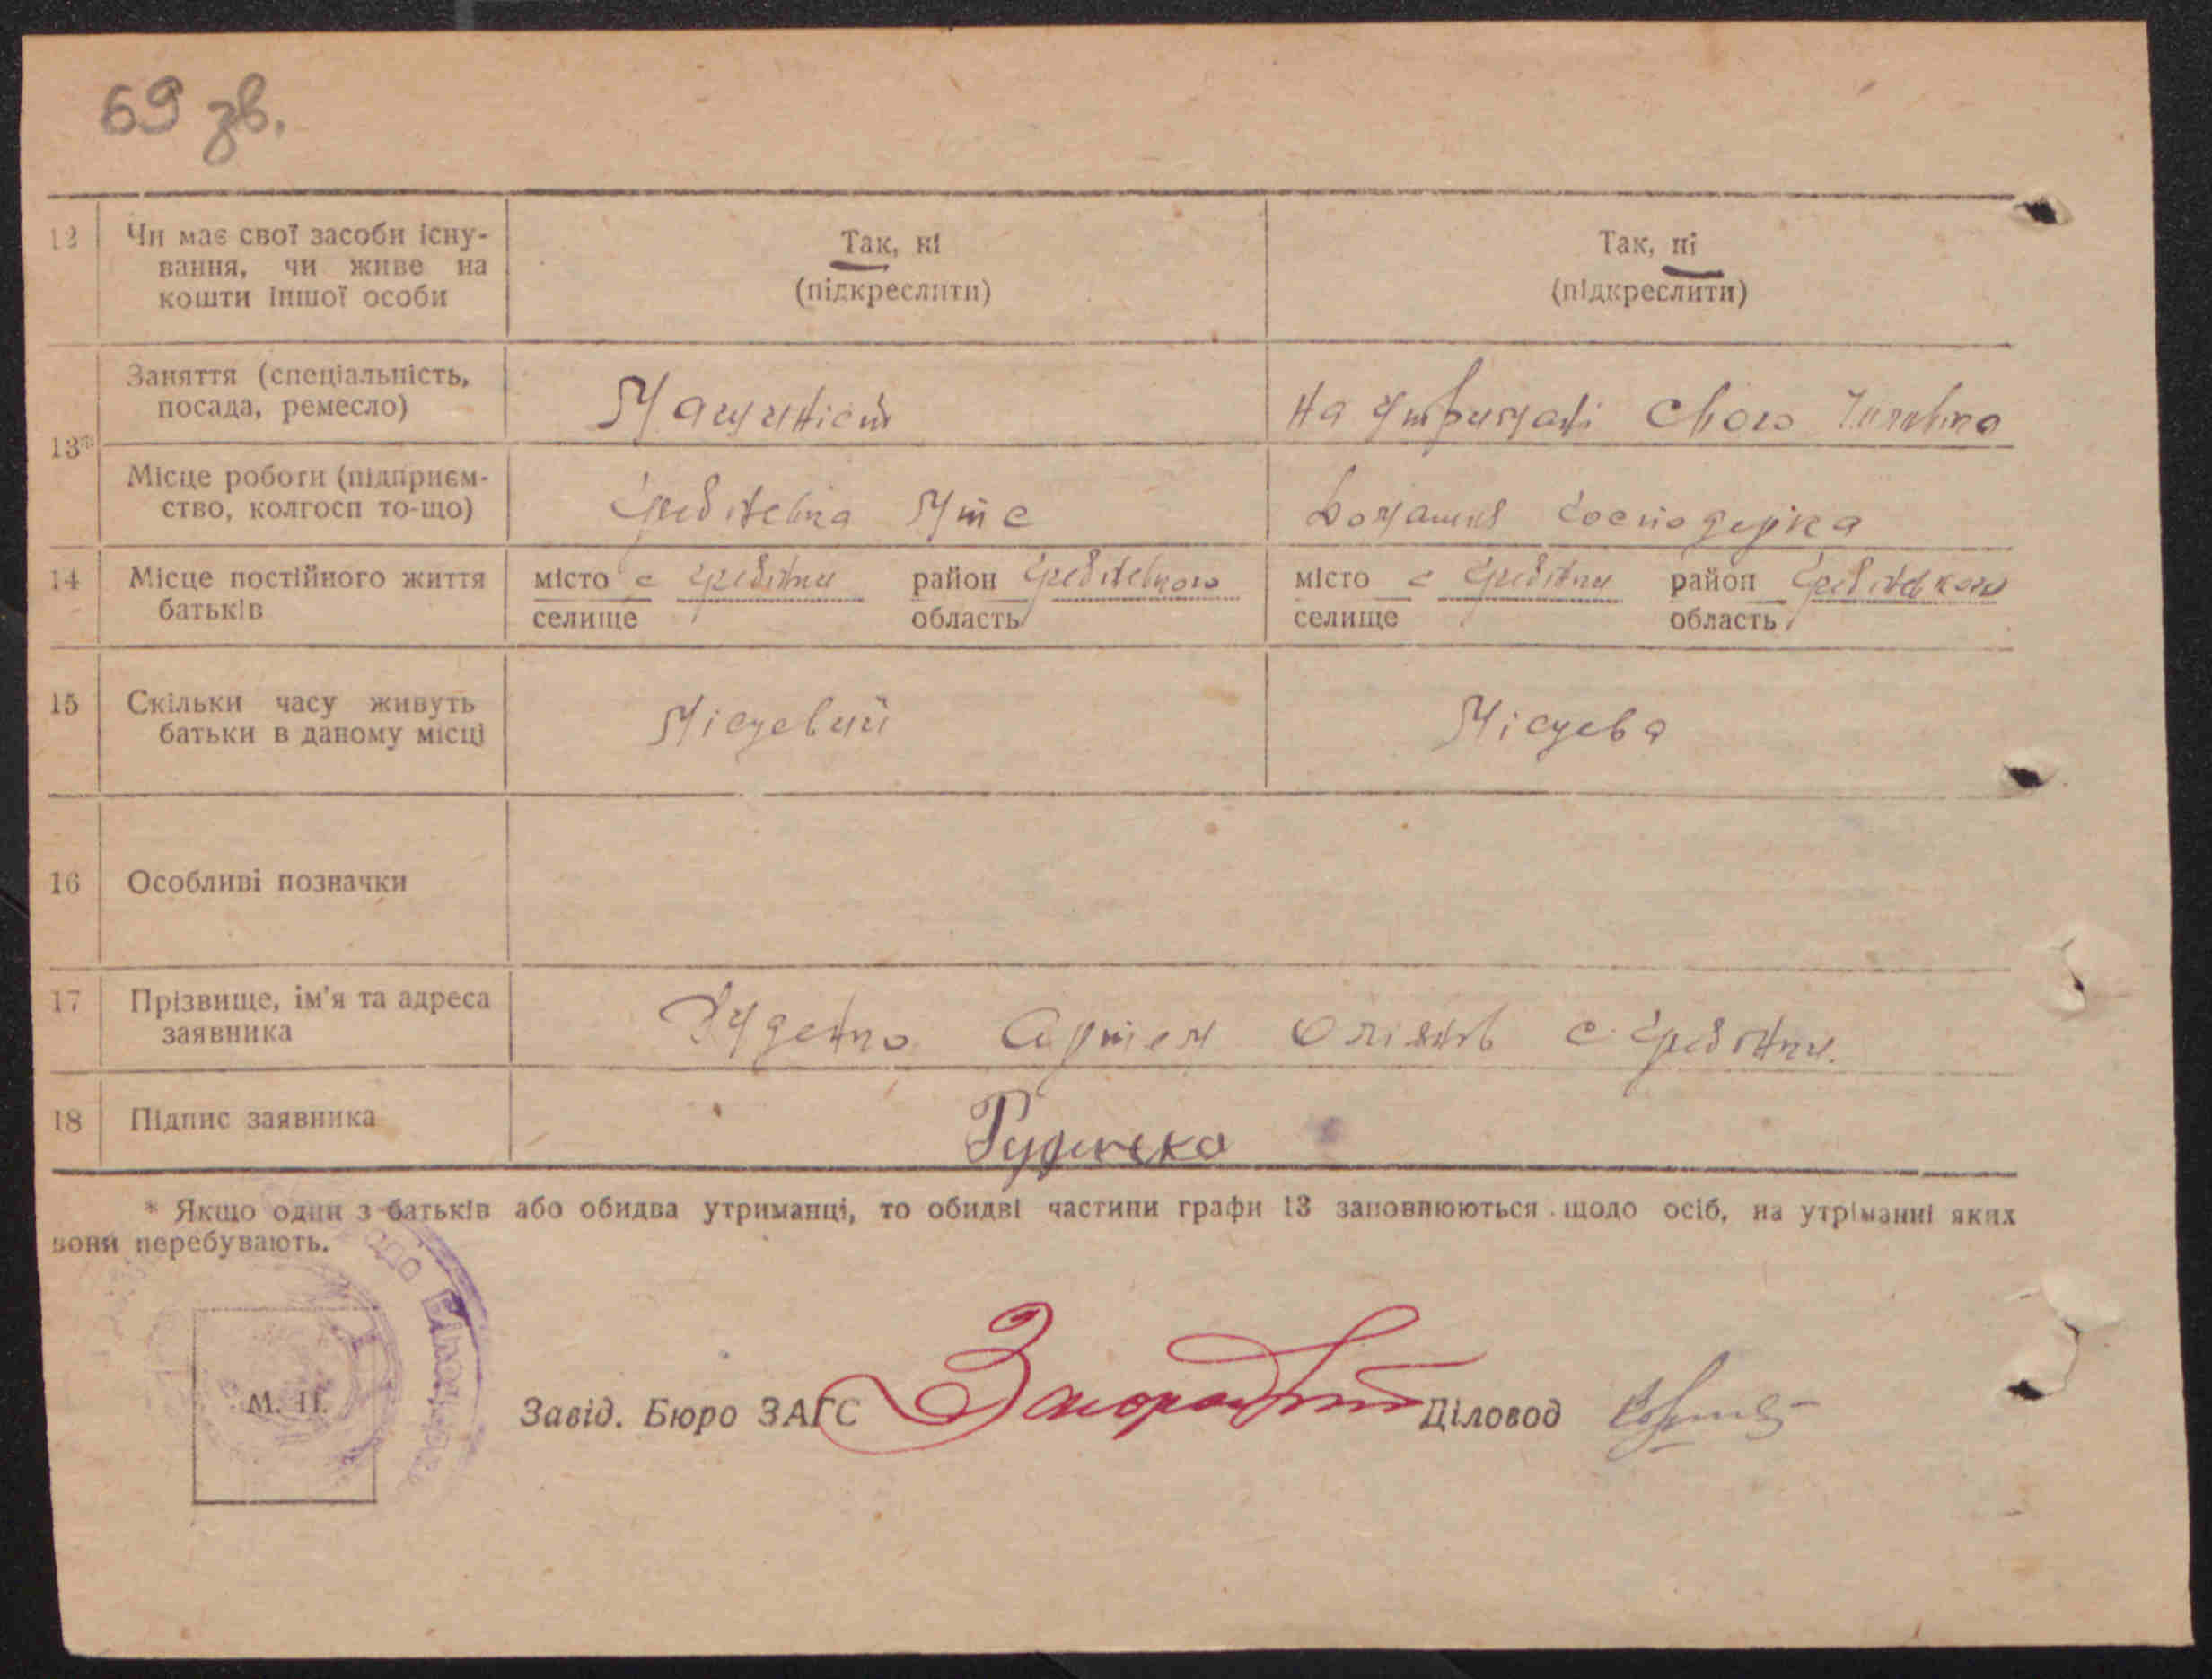 69 зв.
12 Чи має свої засоби існу-
вання, чи живе на
кошти іншої особи
Так, ні
(підкреслити)
Так, ні
(підкреслити)
13* Заняття (спеціальність,
посада, ремесло)
Машиніст
на утриманні свого чоловіка
Місце роботи (підприєм-
ство, колгосп то-що)
Гребінська МТС
Домашня господарка
14 Місце постійного життя
батьків
місто с Гребінки район Гребінського
селище область
місто с Гребінки район Гребінського
селище область
15 Скільки часу живуть
батьки в даному місці
Місцевий
Місцева
16 Особливі позначки
17 Прізвище, ім'я та адреса
заявника
Руденко Артем с. Гребінки.
18 Підпис заявника
Руденко
* Якщо один з батьків або обидва утриманці, то обидві частини графи 13 заповнюються щодо осіб, на утріманні яких
вони перебувають.
М. П.
Завід. Бюро ЗАГС
Діловод